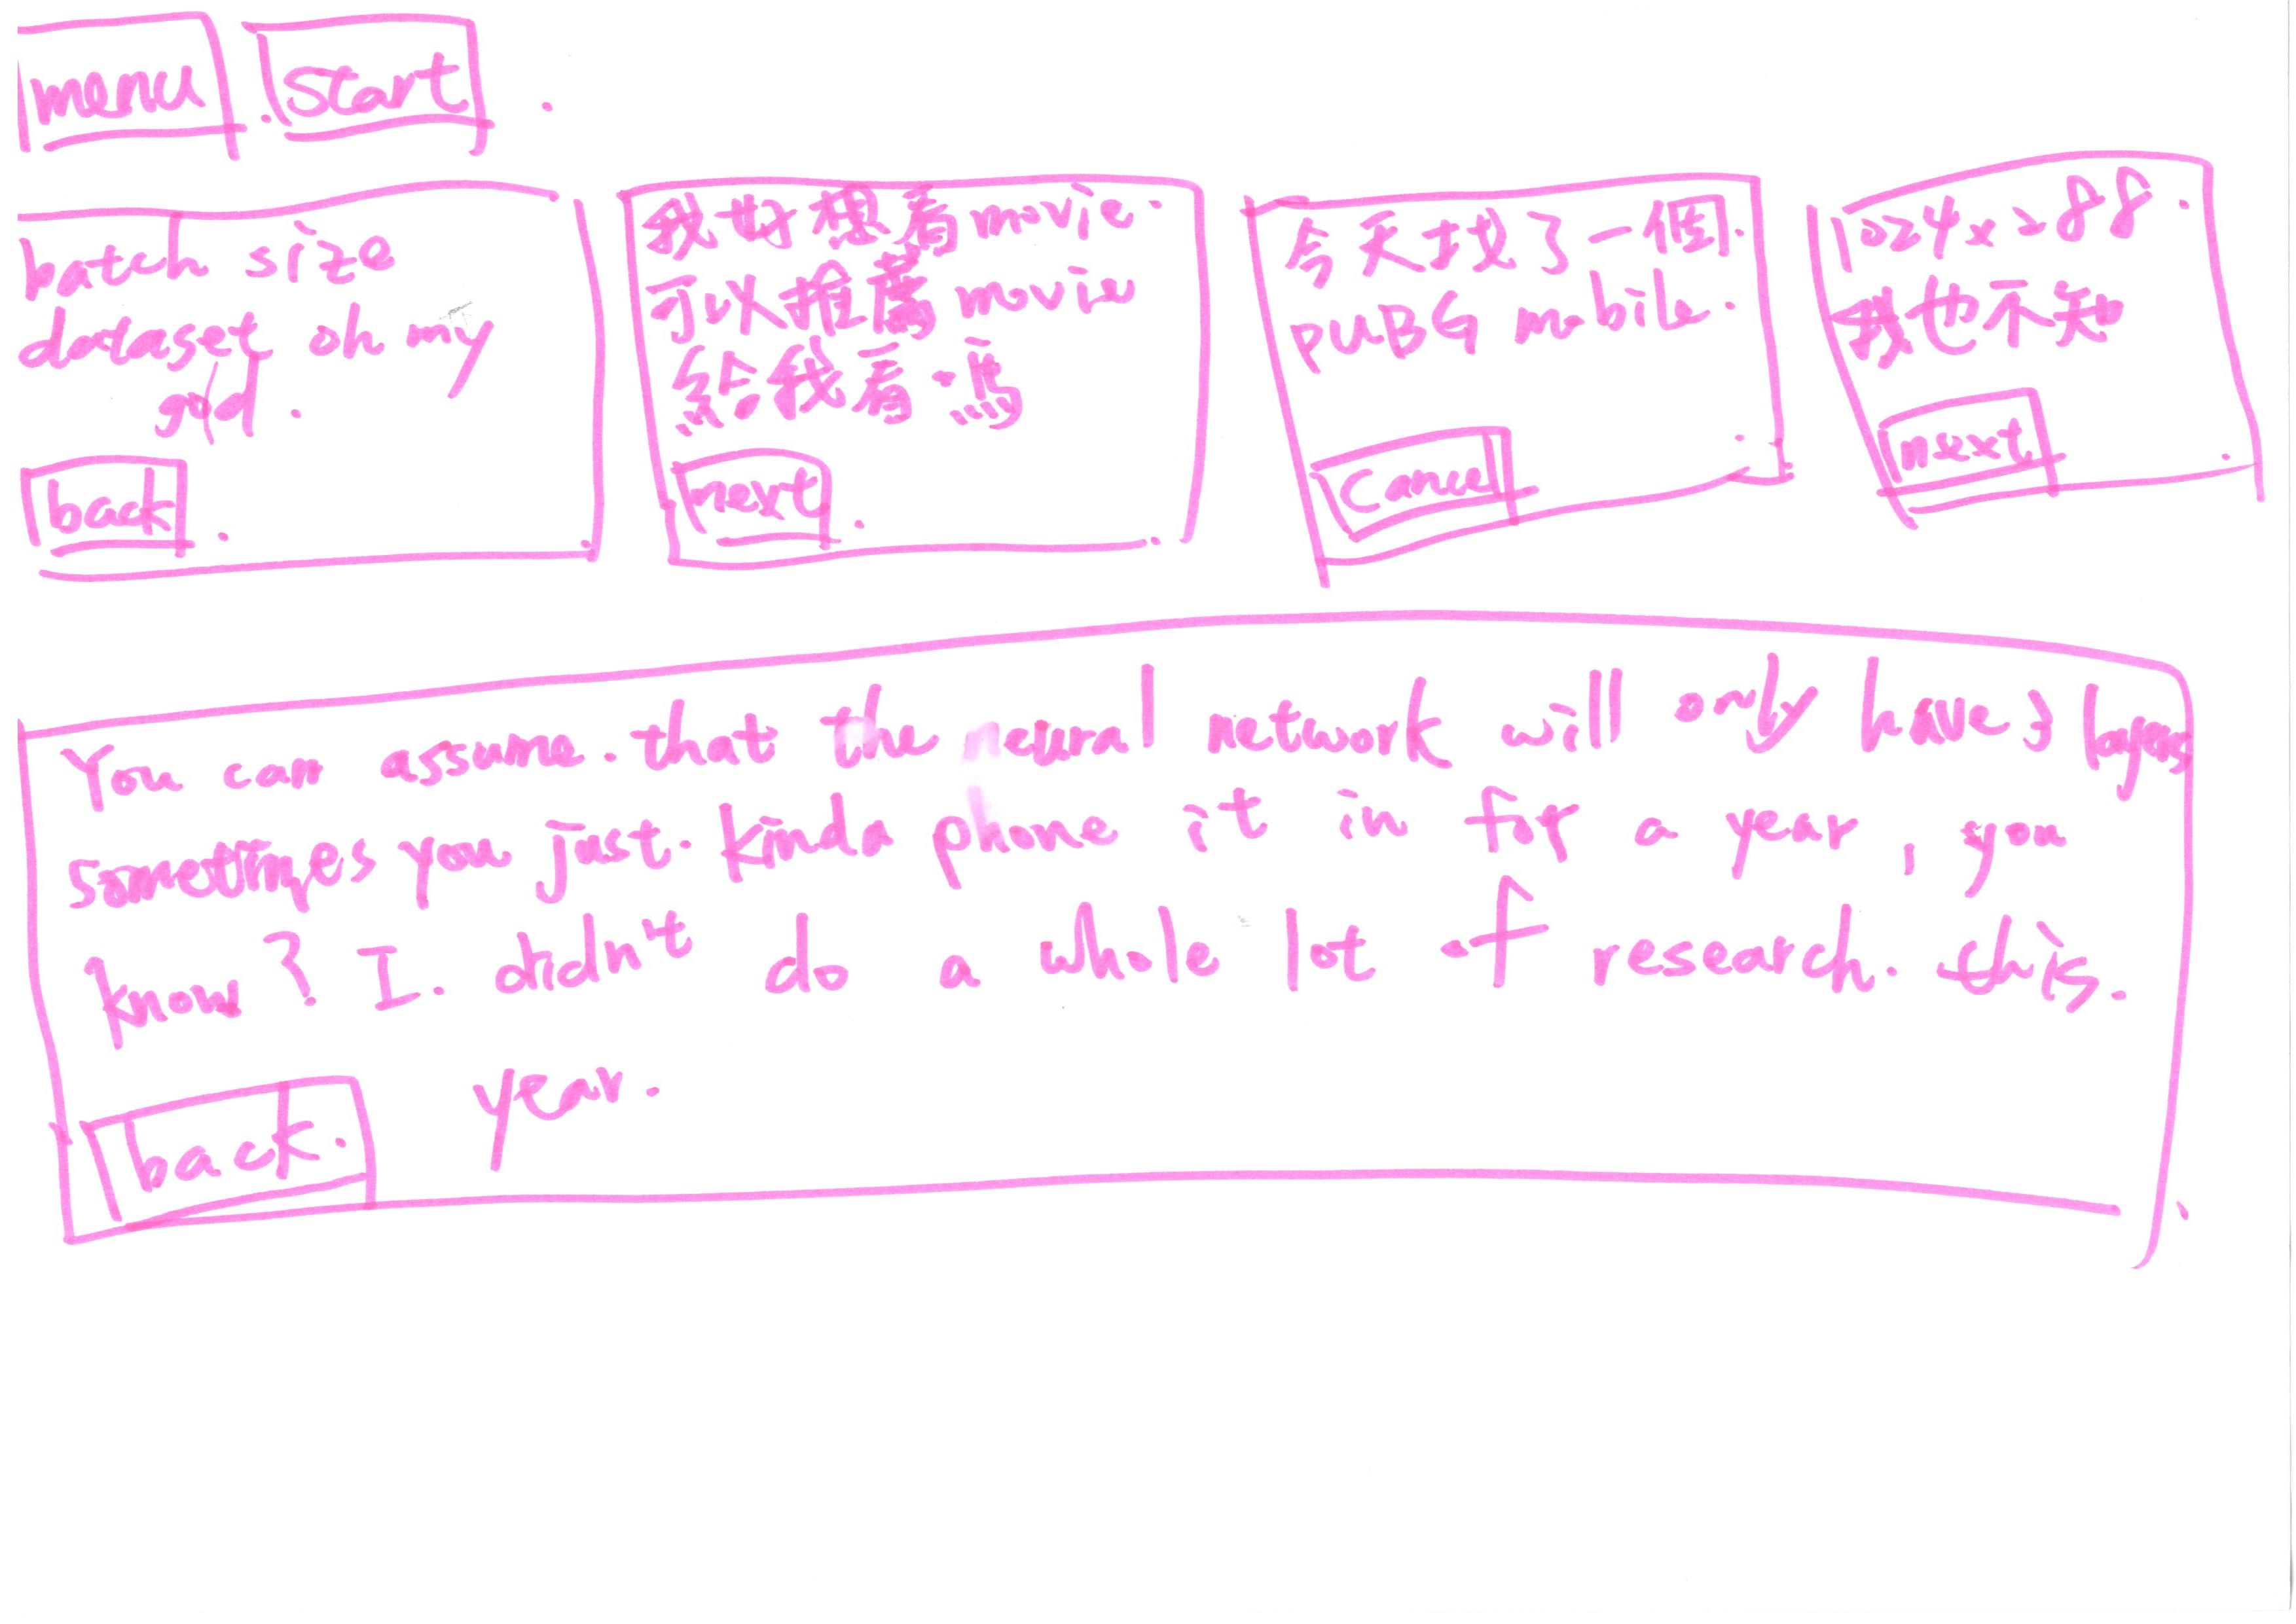 menu
Start
batch size
dataset oh my
god.
back
我好想看movie.
可以推薦movie
給我看嗎
next
今天找了一個
PUBG mobile.
Cancel
1024x288.
我也不知
next
You can assume. that the neural network will only have 3 layers
sometimes you just. kinda phone it in for a year, you
know? I. didn't do a whole lot of research. this.
year.
back.